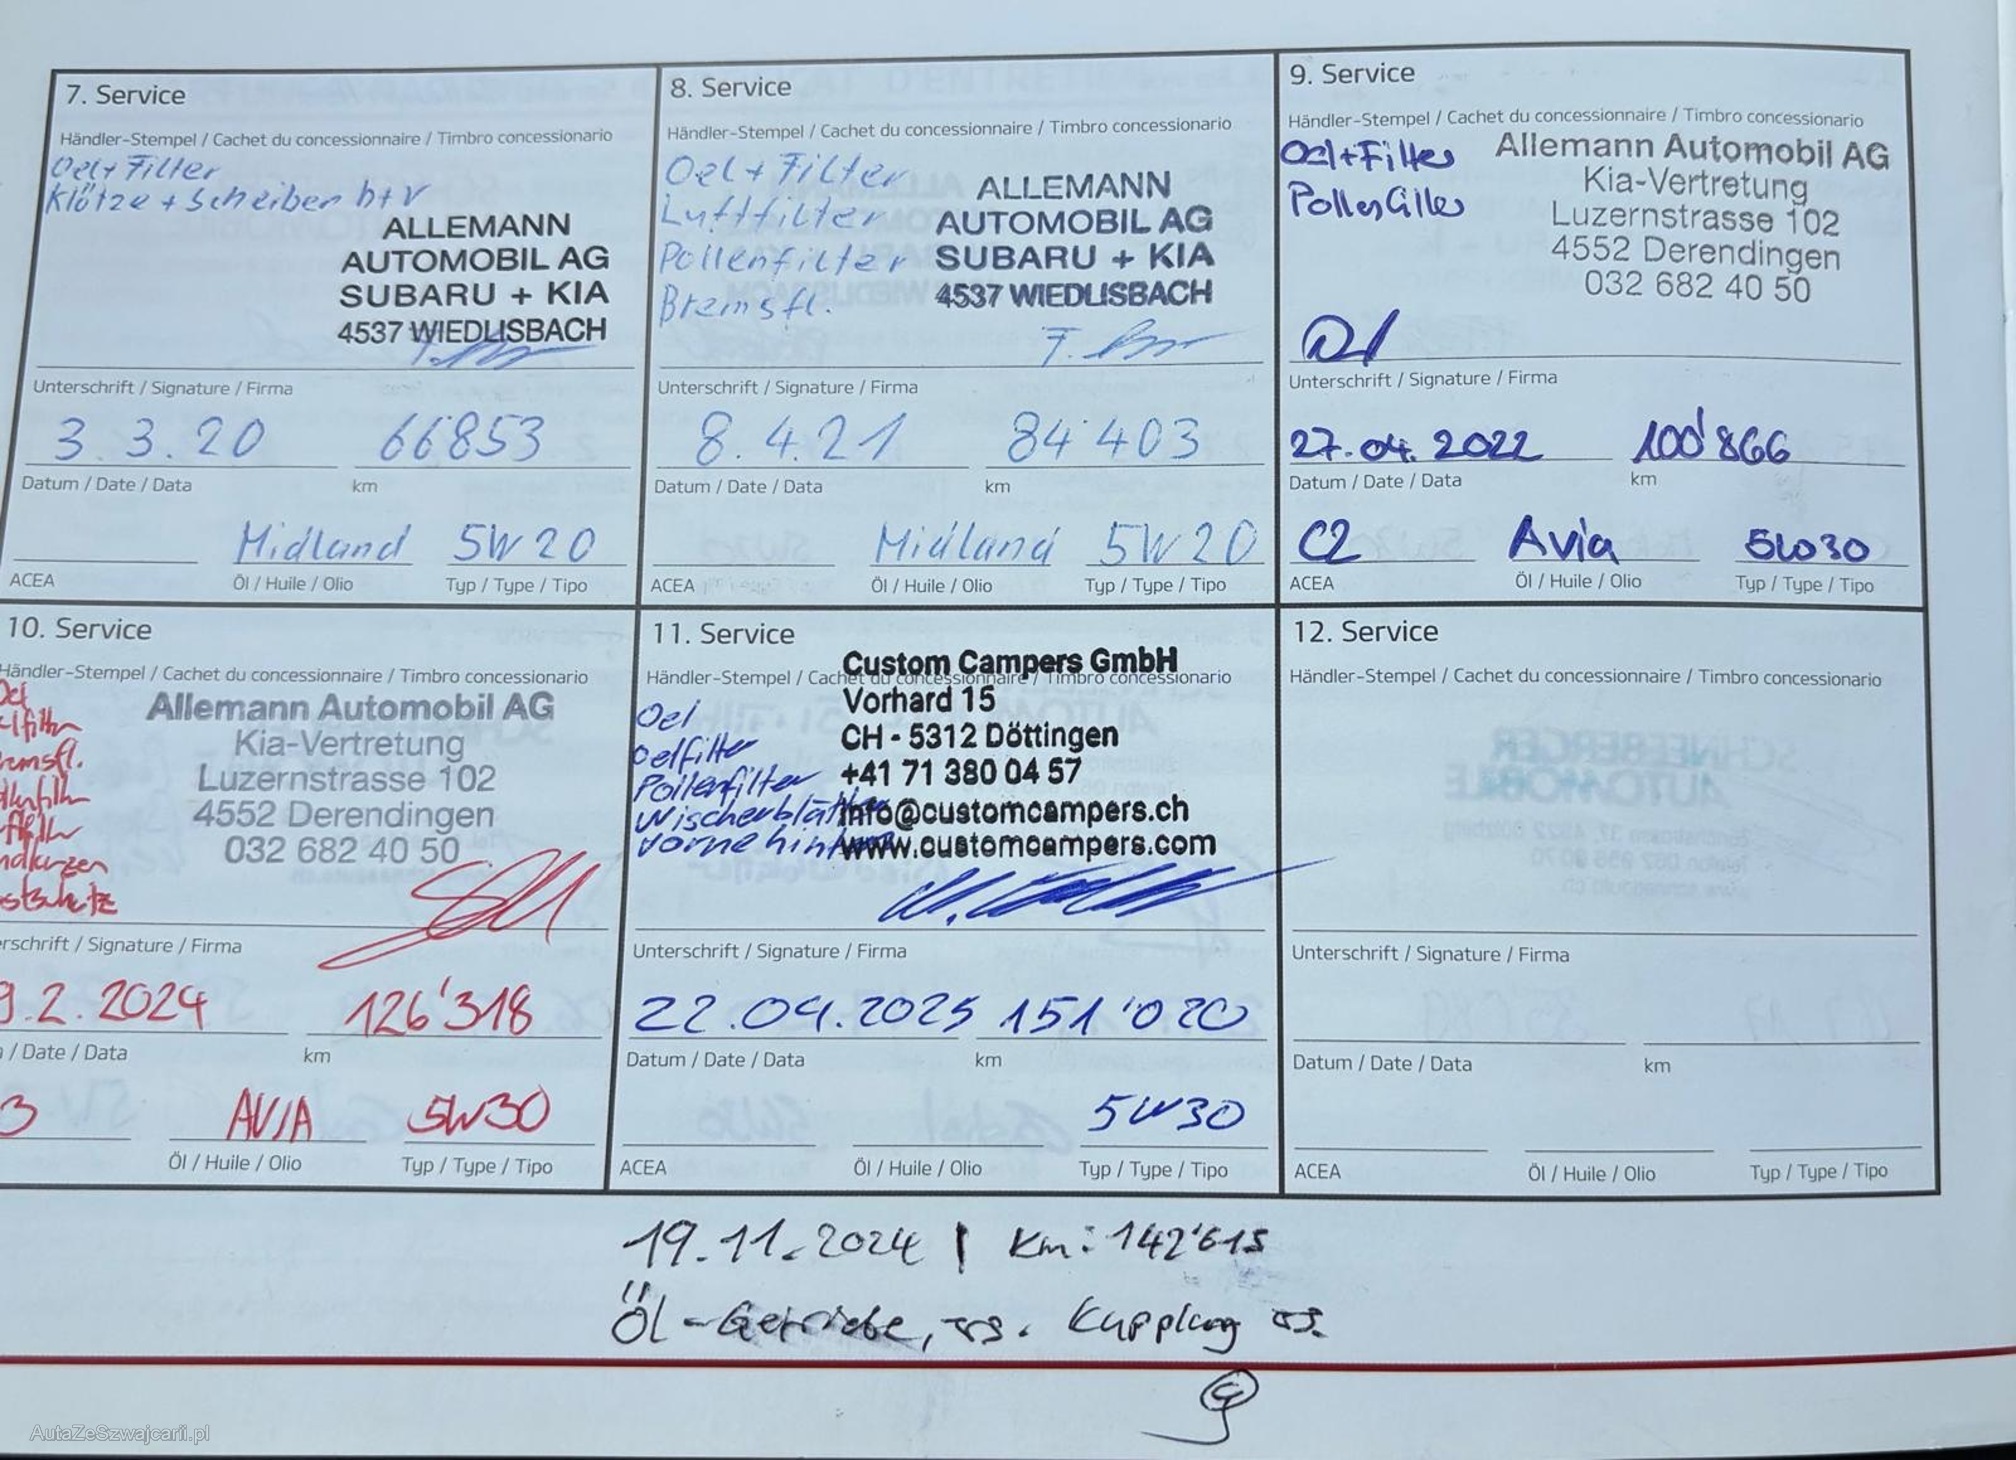 7. Service
Händler-Stempel / Cachet du concessionnaire / Timbro concessionario
Oel+Filter
Klötze + Scheiben h+v
ALLEMANN
AUTOMOBIL AG
SUBARU + KIA
4537 WIEDLISBACH
Unterschrift / Signature / Firma
3.3.20 66853
Datum / Date / Data km
Midland 5W20
ACEA Öl / Huile / Olio Typ / Type / Tipo
8. Service
Händler-Stempel / Cachet du concessionnaire / Timbro concessionario
Oel+Filter
Luftfilter
Pollenfilter
Bremsfl.
ALLEMANN
AUTOMOBIL AG
SUBARU + KIA
4537 WIEDLISBACH
Unterschrift / Signature / Firma
8.4.21 84'403
Datum / Date / Data km
Midland 5W20
ACEA Öl / Huile / Olio Typ / Type / Tipo
9. Service
Händler-Stempel / Cachet du concessionnaire / Timbro concessionario
Oel+Filter
Pollenfilter
Allemann Automobil AG
Kia-Vertretung
Luzernstrasse 102
4552 Derendingen
032 682 40 50
Unterschrift / Signature / Firma
27.04.2022 100'866
Datum / Date / Data km
C2 Avia 5W30
ACEA Öl / Huile / Olio Typ / Type / Tipo
10. Service
Händler-Stempel / Cachet du concessionnaire / Timbro concessionario
Allemann Automobil AG
Kia-Vertretung
Luzernstrasse 102
4552 Derendingen
032 682 40 50
erschrift / Signature / Firma
9.2.2024 126'318
/ Date / Data km
3 AVIA 5W30
Öl / Huile / Olio Typ / Type / Tipo
11. Service
Händler-Stempel / Cachet du concessionnaire / Timbro concessionario
Oel
Oelfilter
Pollenfilter
Wischerblätter
vorne hinten
Custom Campers GmbH
Vorhard 15
CH - 5312 Döttingen
+41 71 380 04 57
info@customcampers.ch
www.customcampers.com
Unterschrift / Signature / Firma
22.04.2025 151'020
Datum / Date / Data km
5W30
ACEA Öl / Huile / Olio Typ / Type / Tipo
12. Service
Händler-Stempel / Cachet du concessionnaire / Timbro concessionario
Unterschrift / Signature / Firma
Datum / Date / Data km
ACEA Öl / Huile / Olio Typ / Type / Tipo
19.11.2024 | Km: 142'615
Öl-Getriebe, Kupplung
AutaZeSzwajcarii.pl